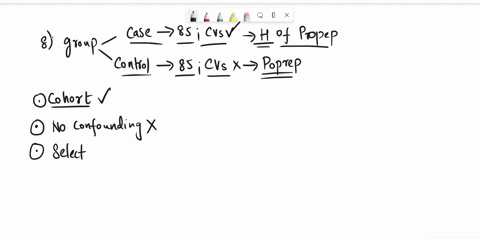 8) group Case → 85 ; CVS ✓ → H of Propep
Control → 85 ; CVS X → Poprep
⊙ Cohort ✓
⊙ No confounding X
⊙ Select